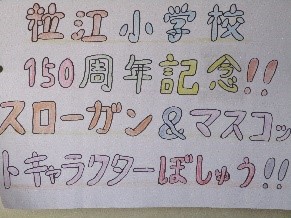 粒江小学校
150周年記念!!
スローガン&マスコッ
トキャラクターぼしゅう!!